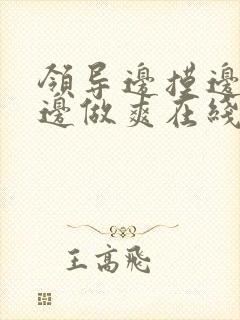 領导邊摸邊
邊做爽在綫
王高飛